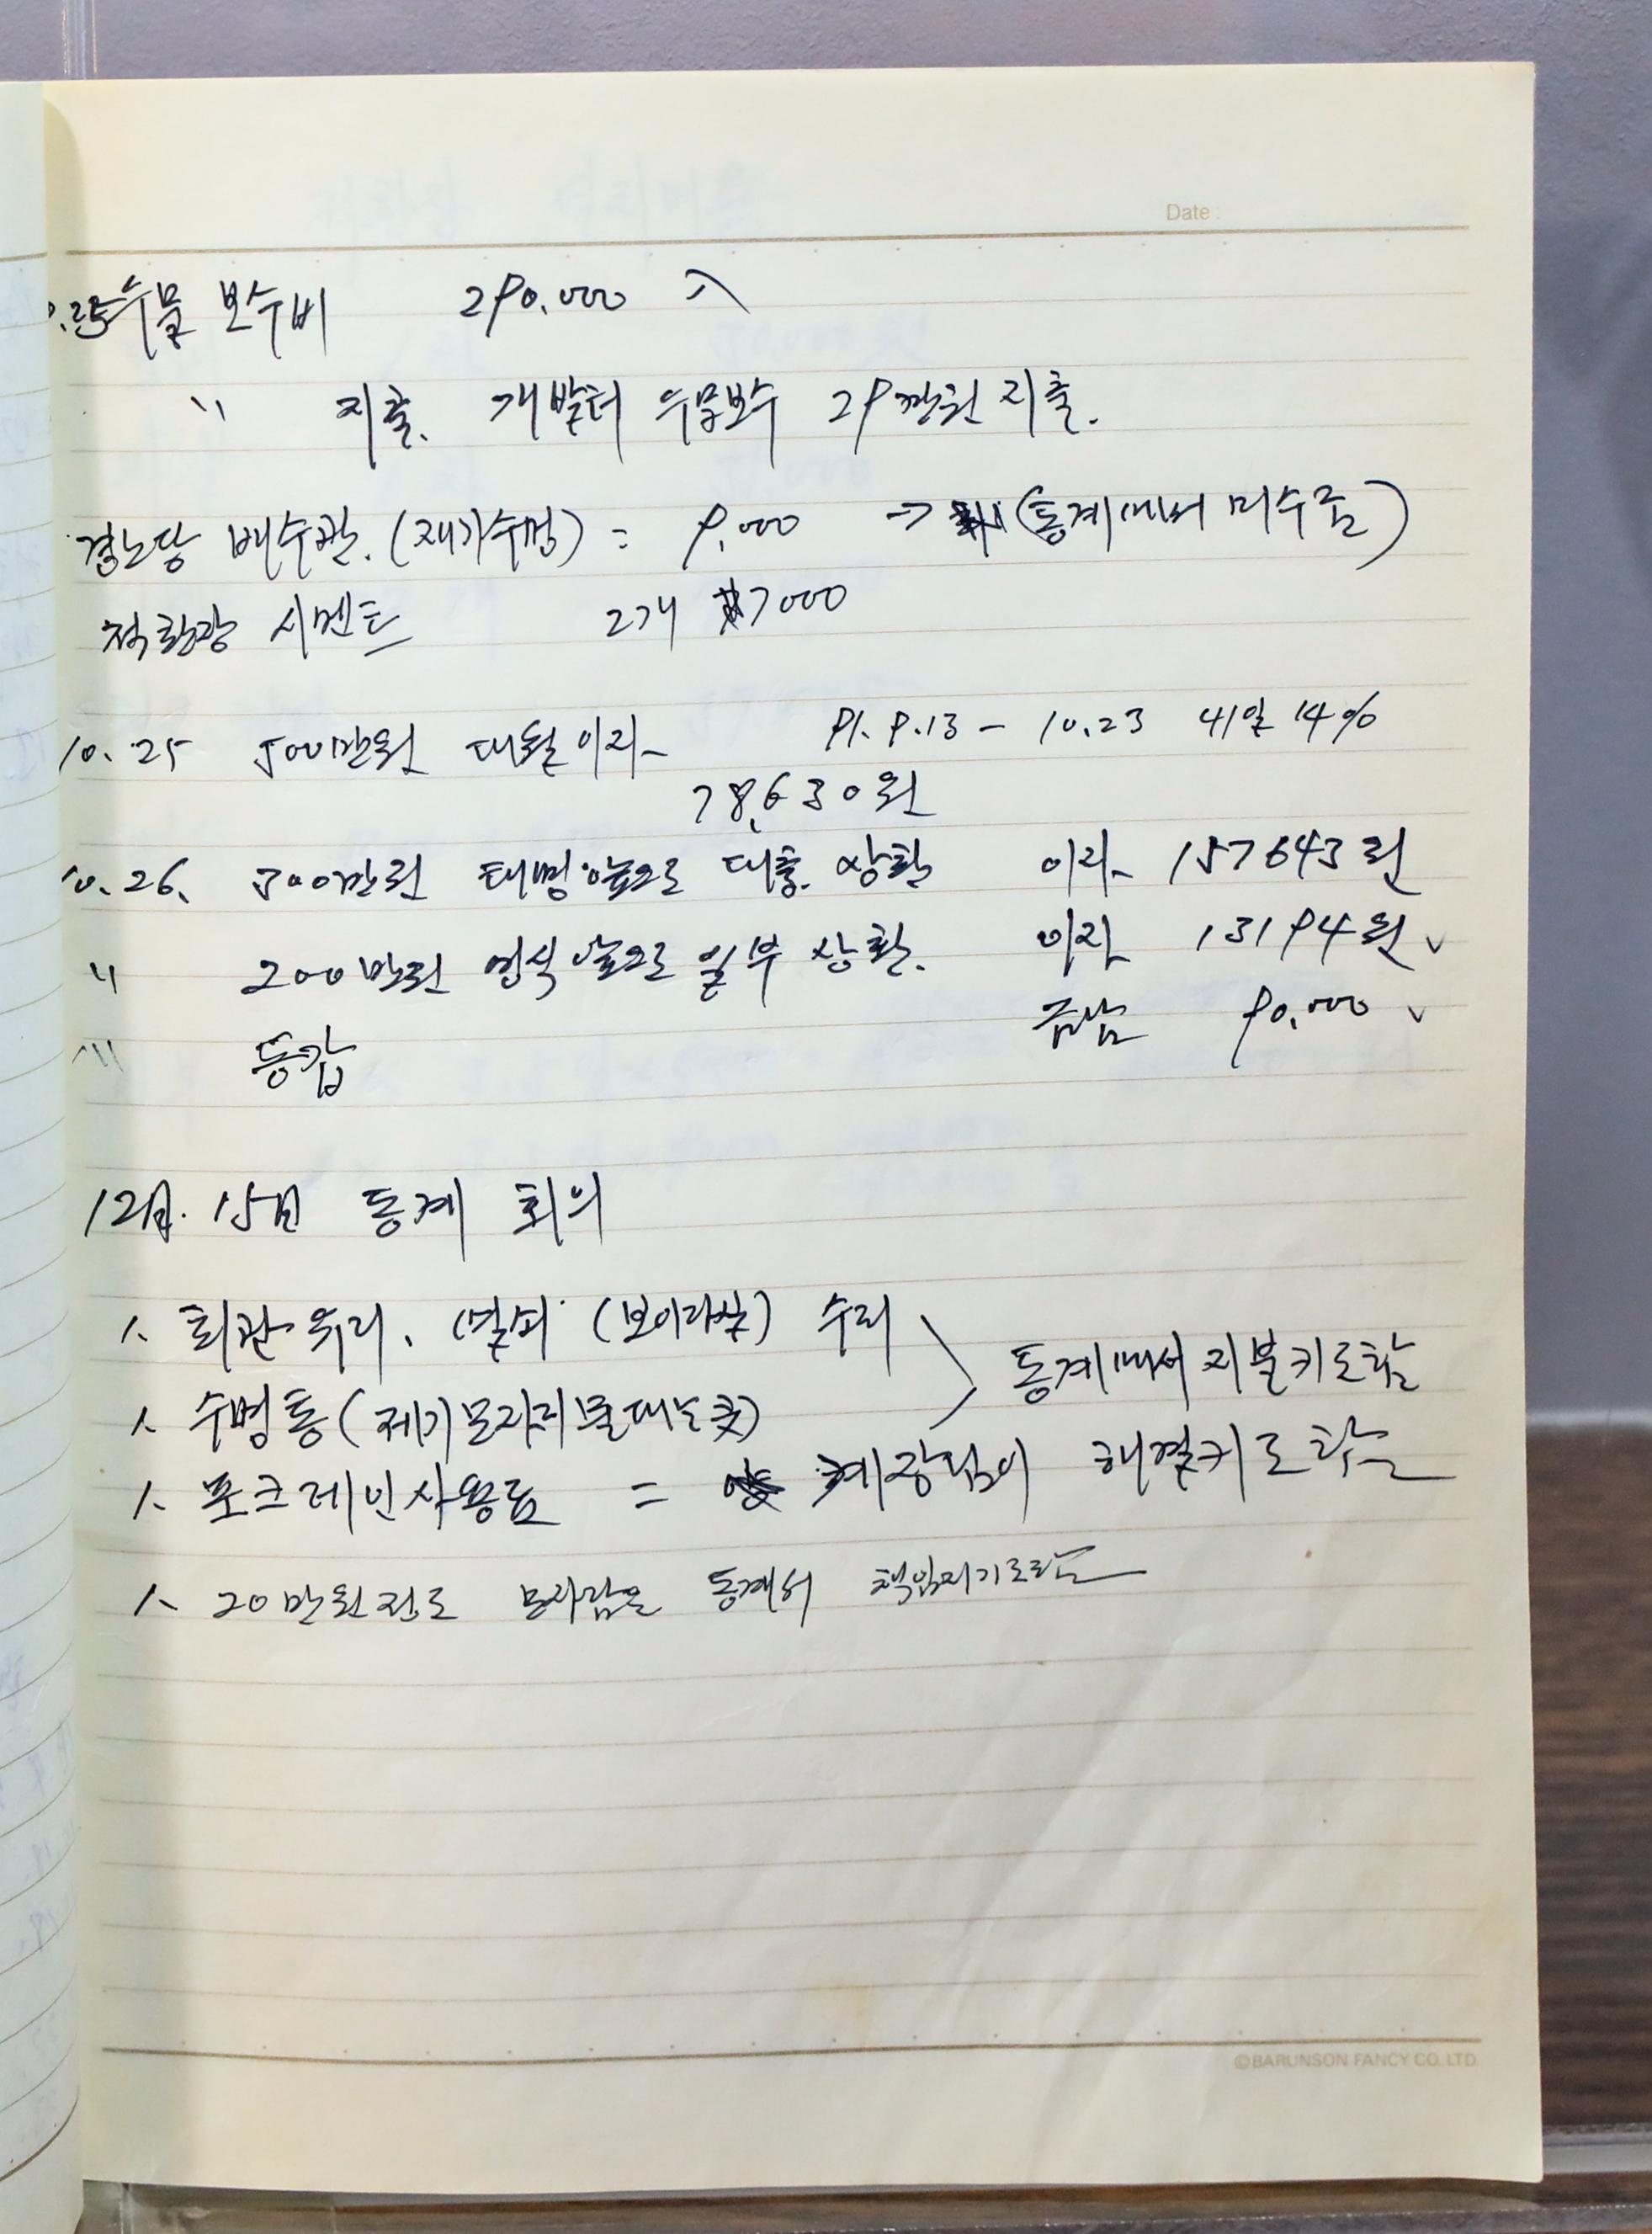 Date :
0.25 우물 보수비 290.000 入
〃 지출. 개발터 우물보수 29만원 지출.
경노당 배수관. (재가수명) = 9.000 → (동계에서 미수금)
척화장 시멘트 2개 7000
10. 25 500만원 대월이자 91. 9.13 - 10.23 41일 14%
78,630원
10. 26. 500만원 태명앞으로 대출. 상환 이자 157643원
〃 200만원 영식앞으로 일부 상환. 이자 13194원 ✓
〃 동갑 금남 90.000 ✓
12月. 15日 동계 회의
1. 회관유리, 열쇠 (보이라실) 수리
동계에서 지불키로함
1. 수명통 (제기모자리물대는곳)
1. 포크레인사용료 = 계장님이 해결키로함
1. 20만원정도 모자람은 동계서 책임지기로함
©BARUNSON FANCY CO. LTD.